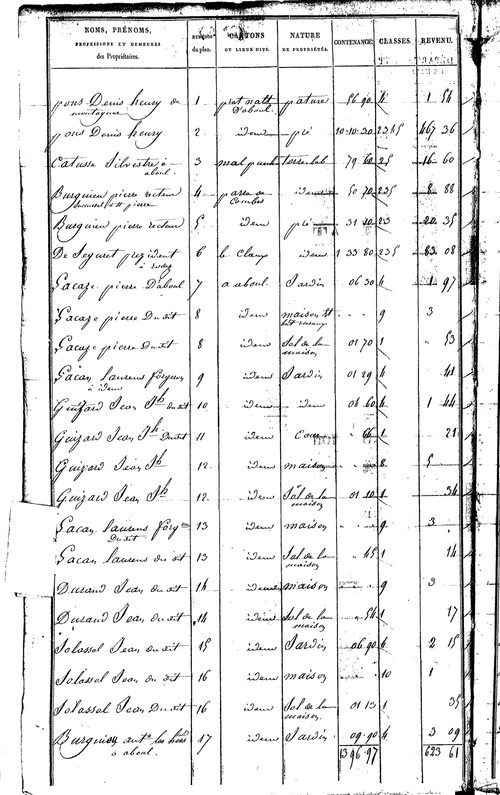 NOMS, PRÉNOMS, PROFESSIONS ET DEMEURES des Propriétaires. NUMÉROS du plan. CANTONS OU LIEUX DITS. NATURE DE PROPRIÉTÉS. CONTENANCE. CLASSES. REVENU.
pons Denis henry de montagnac 1 prat natt D'aboul pature 56 90 4 1 54
pons Denis henry 2 idem pré 10 10 30 2345 467 36
Catusse Silvestre à aboul 3 mal punh terre lab 79 60 25 16 60
Burguieu pierre recteur 4 passe de Combes idem 50 70 235 8 88
Burguieu pierre recteur 5 idem pré 31 20 23 20 35
De Seguret président à rodez 6 le Claux idem 1 33 80 235 83 08
Lacaze pierre D'aboul 7 a aboul Jardin 06 30 4 1 97
Lacaze pierre Du dit 8 idem maison et 9 3
Lacaze pierre Du dit 8 idem Sol de la maison 01 70 1 53
Lacan laurens forgeron à idem 9 idem Jardin 01 29 4 41
Guizard Jean Jh du dit 10 idem idem 04 60 4 1 44
Guizard Jean Jh Du dit 11 idem Cour 66 1 21
Guizard Jean Jh 12 idem maison 8 5
Guizard Jean Jh 12 idem Sol de la maison 01 10 1 34
Lacan laurens forgon Du dit 13 idem maison 9 3
Lacan laurens du dit 13 idem Sol de la maison 45 1 14
Durand Jean du dit 14 idem maison 9 3
Durand Jean du dit 14 idem Sol de la maison 54 1 17
Solassol Jean du dit 15 idem Jardin 06 90 4 2 15
Solassol Jean du dit 16 idem maison 10 1
Solassol Jean Du dit 16 idem Sol de la maison 01 13 1 35
Burguieu ante les héés a aboul 17 idem Jardin 09 90 4 3 09
13 96 97 623 61